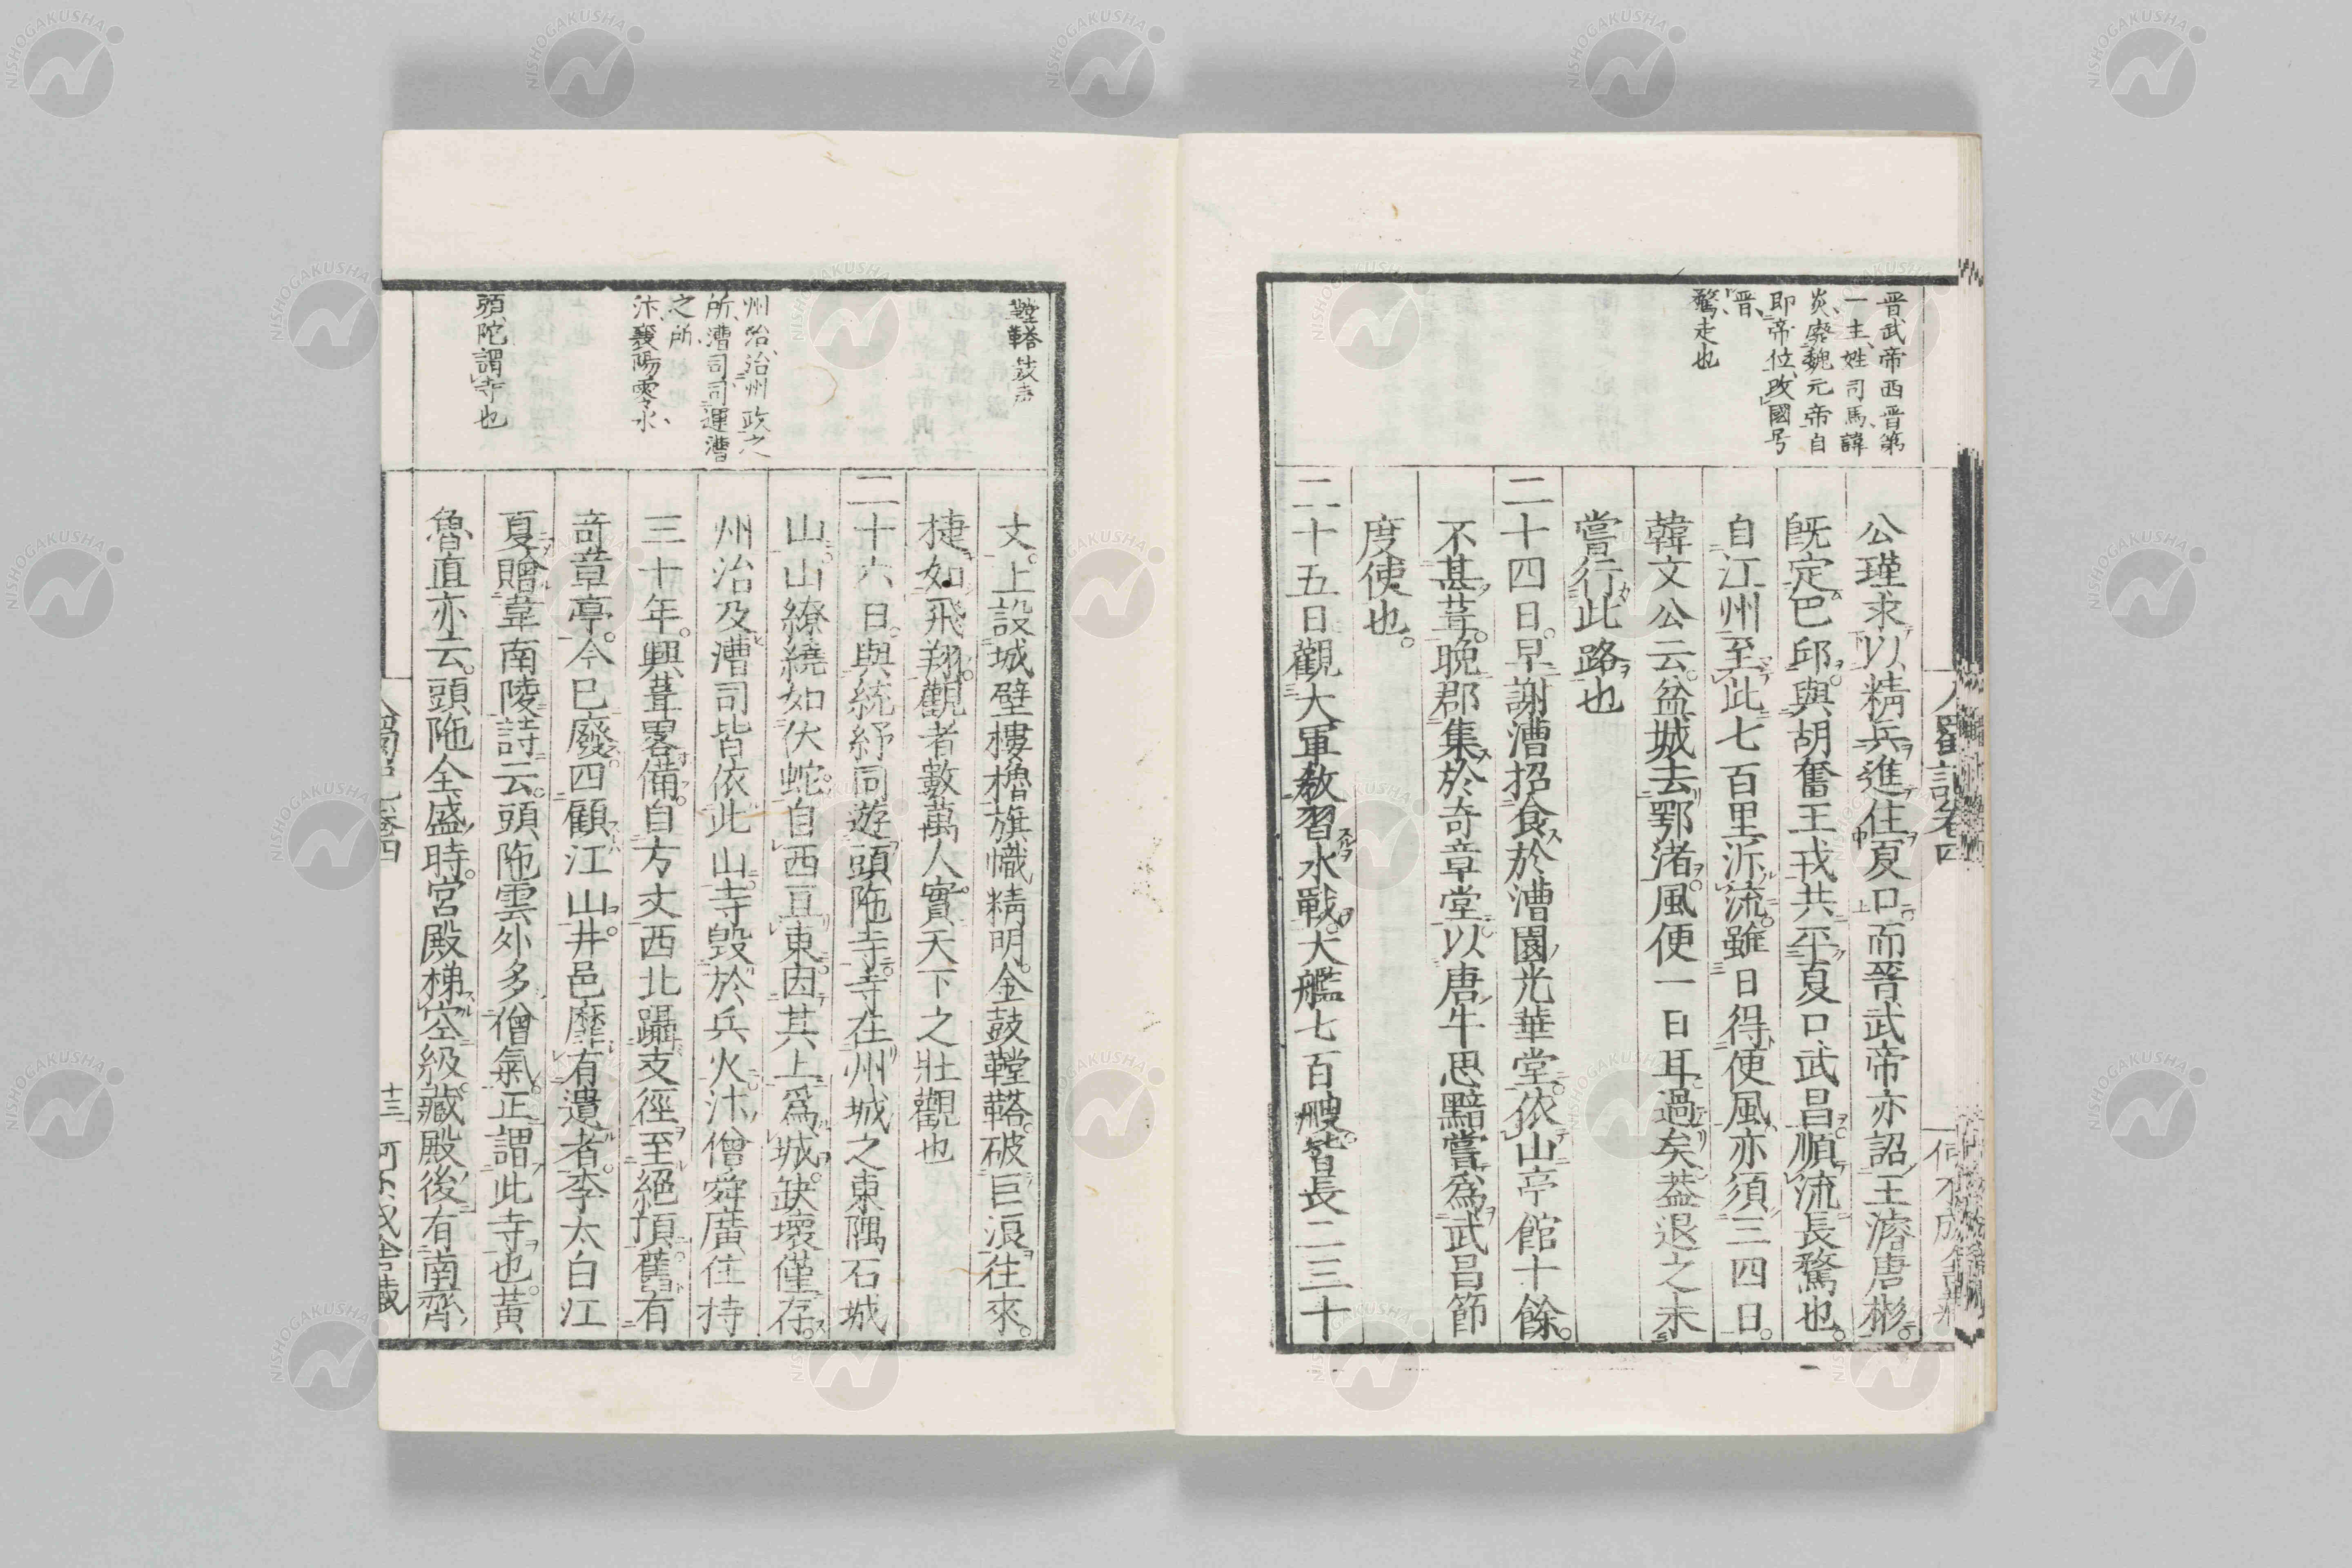 晋武帝西晋第
一主、姓司馬、諱
炎、廃魏元帝自
即帝位、改國号
晋、
騖走也
公瑾求以精兵進住夏口。而晉武帝亦詔王濬唐彬。
既定巴邱。與胡奮王戎共平夏口武昌順流長騖也。
自江州至此七百里泝流。雖日得便風亦須三四日。
韓文公云。盆城去鄂渚。風便一日耳。過矣。葢退之未
嘗行此路也
二十四日。早謝漕招食於漕園光華堂。依山亭館十餘。
不甚葺。晩郡集於奇章堂。以唐牛思黯嘗爲武昌節
度使也。
二十五日觀大軍教習水戰。大艦七百艘。皆長二三十
鞺鞳鼓声
州治、治州政之
所、漕司、司運漕
之所、
汴、襄陽零水、
頭陀謂寺也
丈。上設城壁樓櫓。旗幟精明。金鼓鞺鞳。破巨浪往來。
捷如飛翔。觀者數萬人。實天下之壯觀也
二十六日。與統紓同遊頭陁寺。寺在州城之東隅石城
山。山繚繞如伏蛇。自西亘東。因其上爲城。缺壞僅存。
州治及漕司皆依此山。寺毀於兵火。汴僧舜廣住持
三十年。興葺畧備。自方丈西北躡支徑至絕頂。舊有
奇章亭。今已廢。四顧江山井邑靡有遺者。李太白江
夏贈韋南陵詩云。頭陁雲外多僧氣。正謂此寺也。黃
魯直亦云。頭陁全盛時。宮殿梯空級。藏殿後有南齊
十三